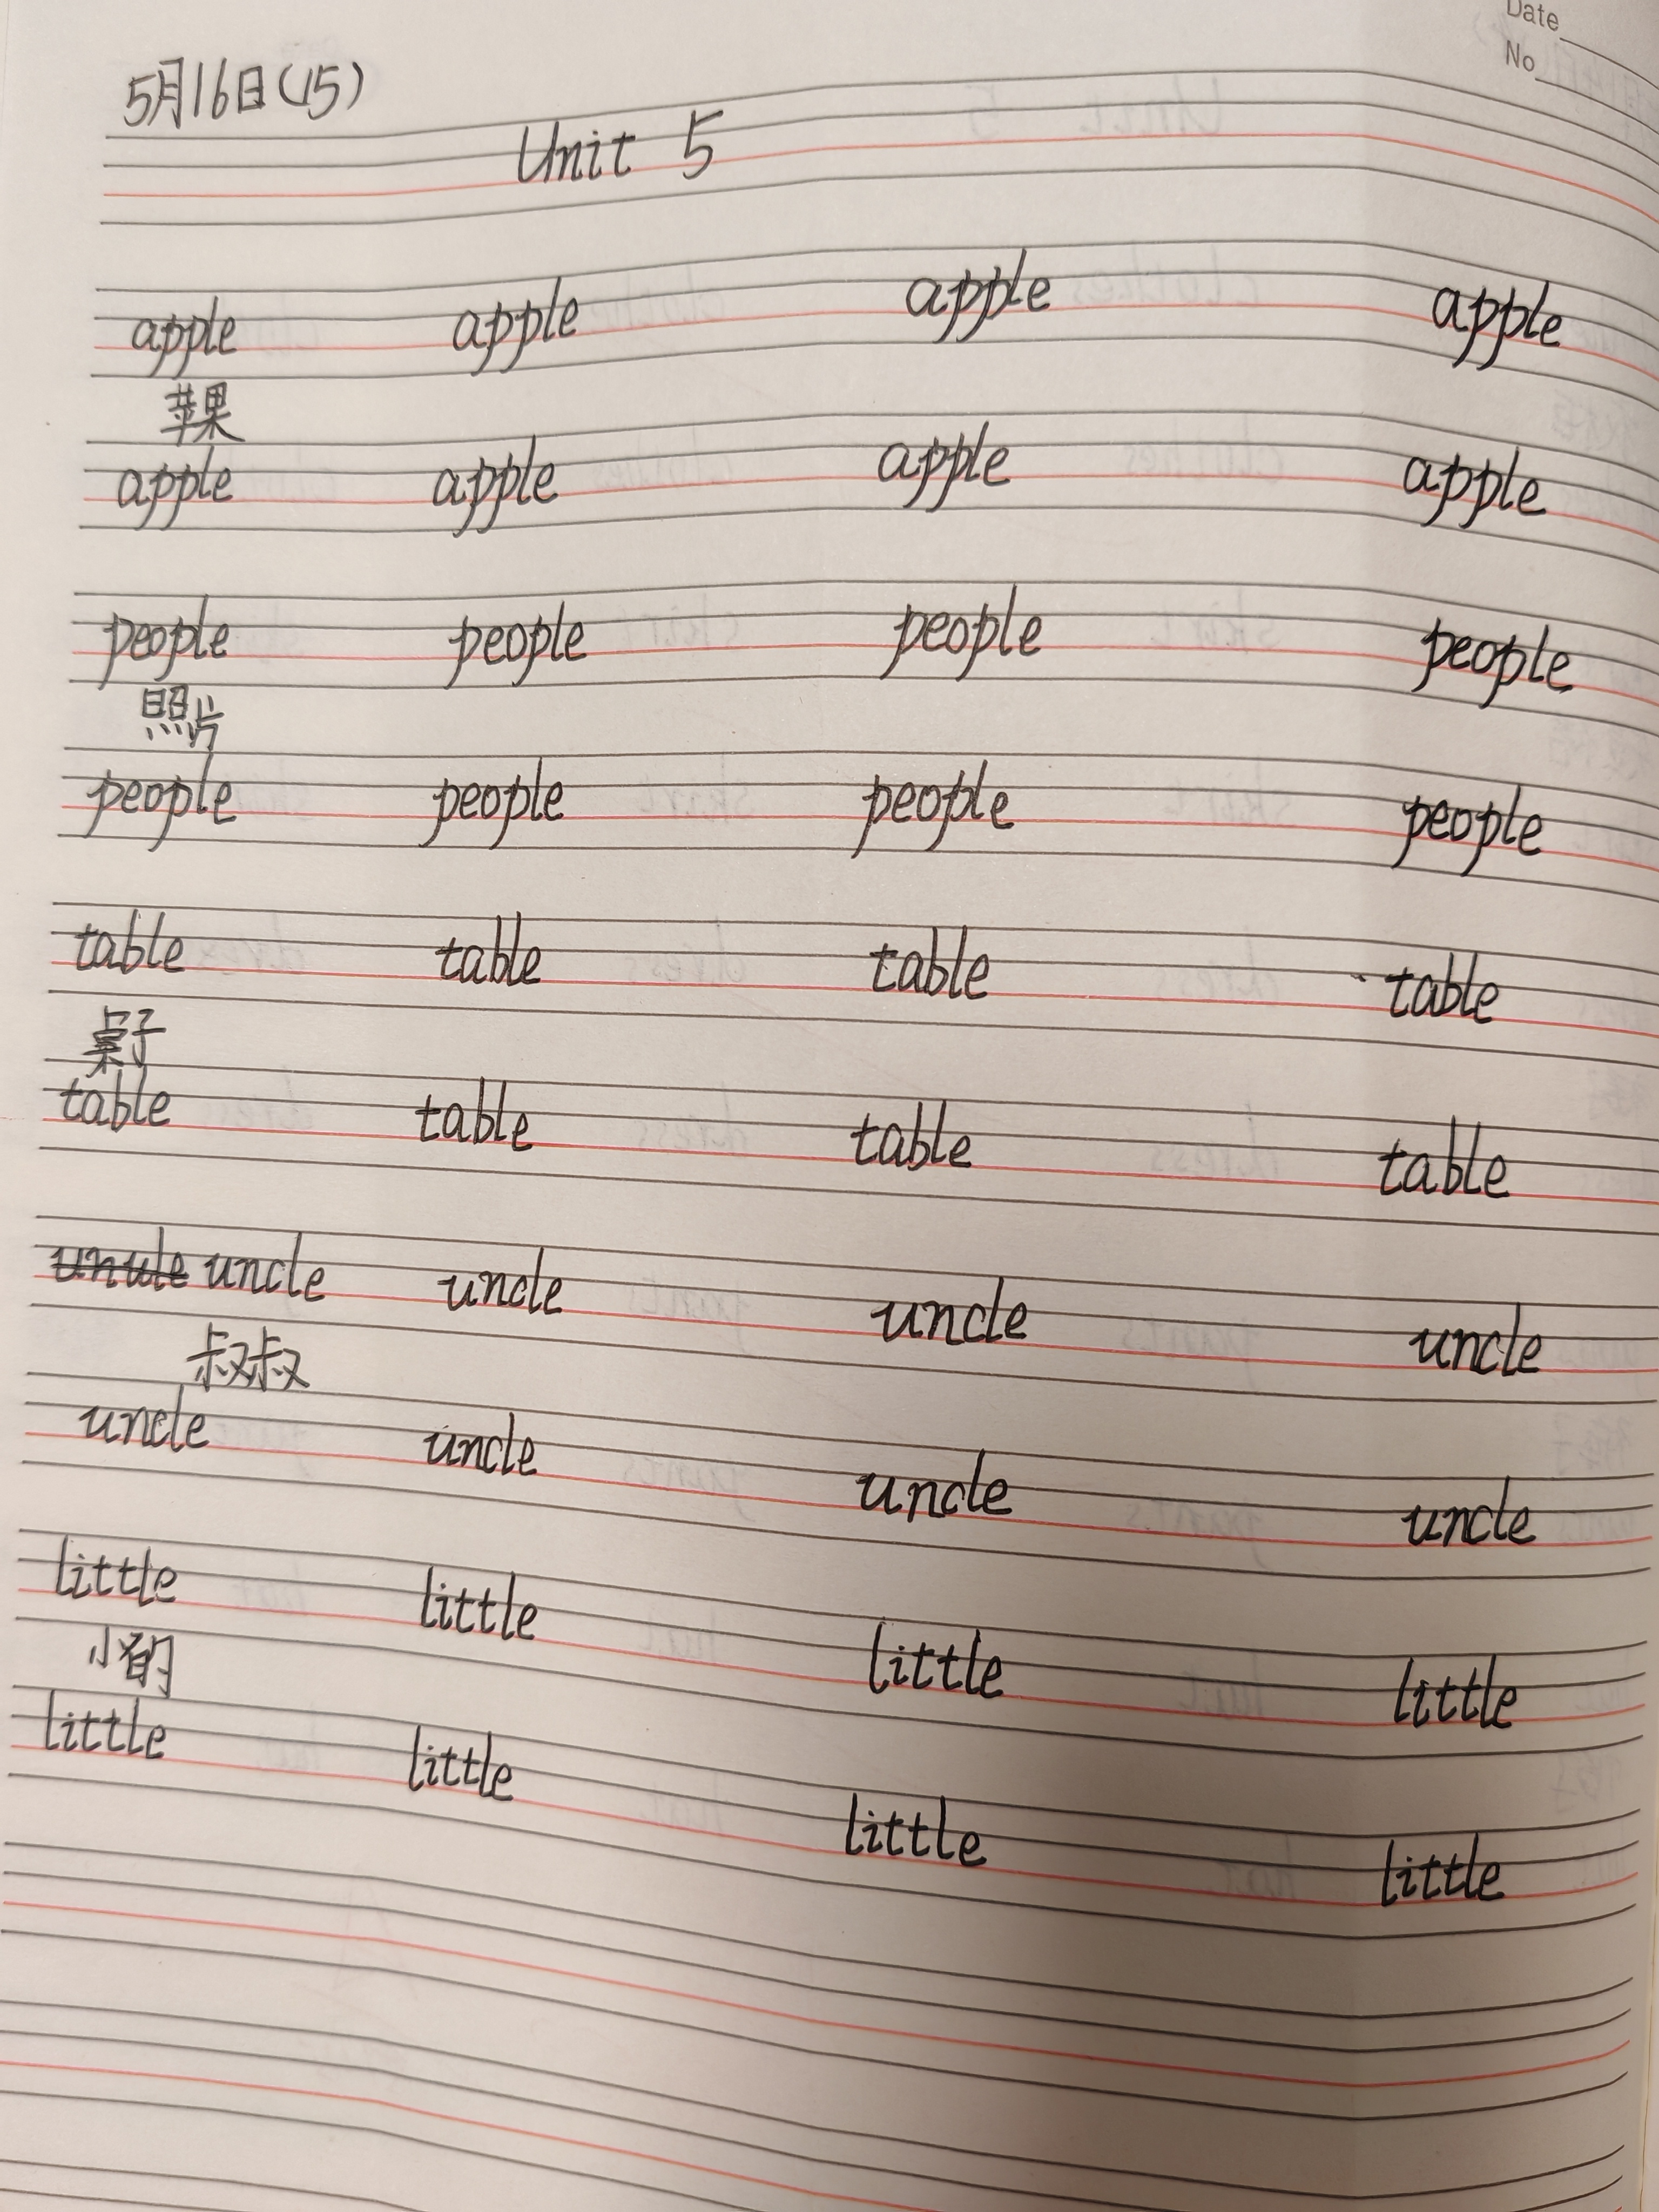 Date
No
5月16日(15)
Unit 5
apple apple apple apple
苹果
apple apple apple apple
people people people people
照片
people people people people
table table table table
桌子
table table table table
uncle uncle uncle uncle
叔叔
uncle uncle uncle uncle
little little little little
小的
little little little little